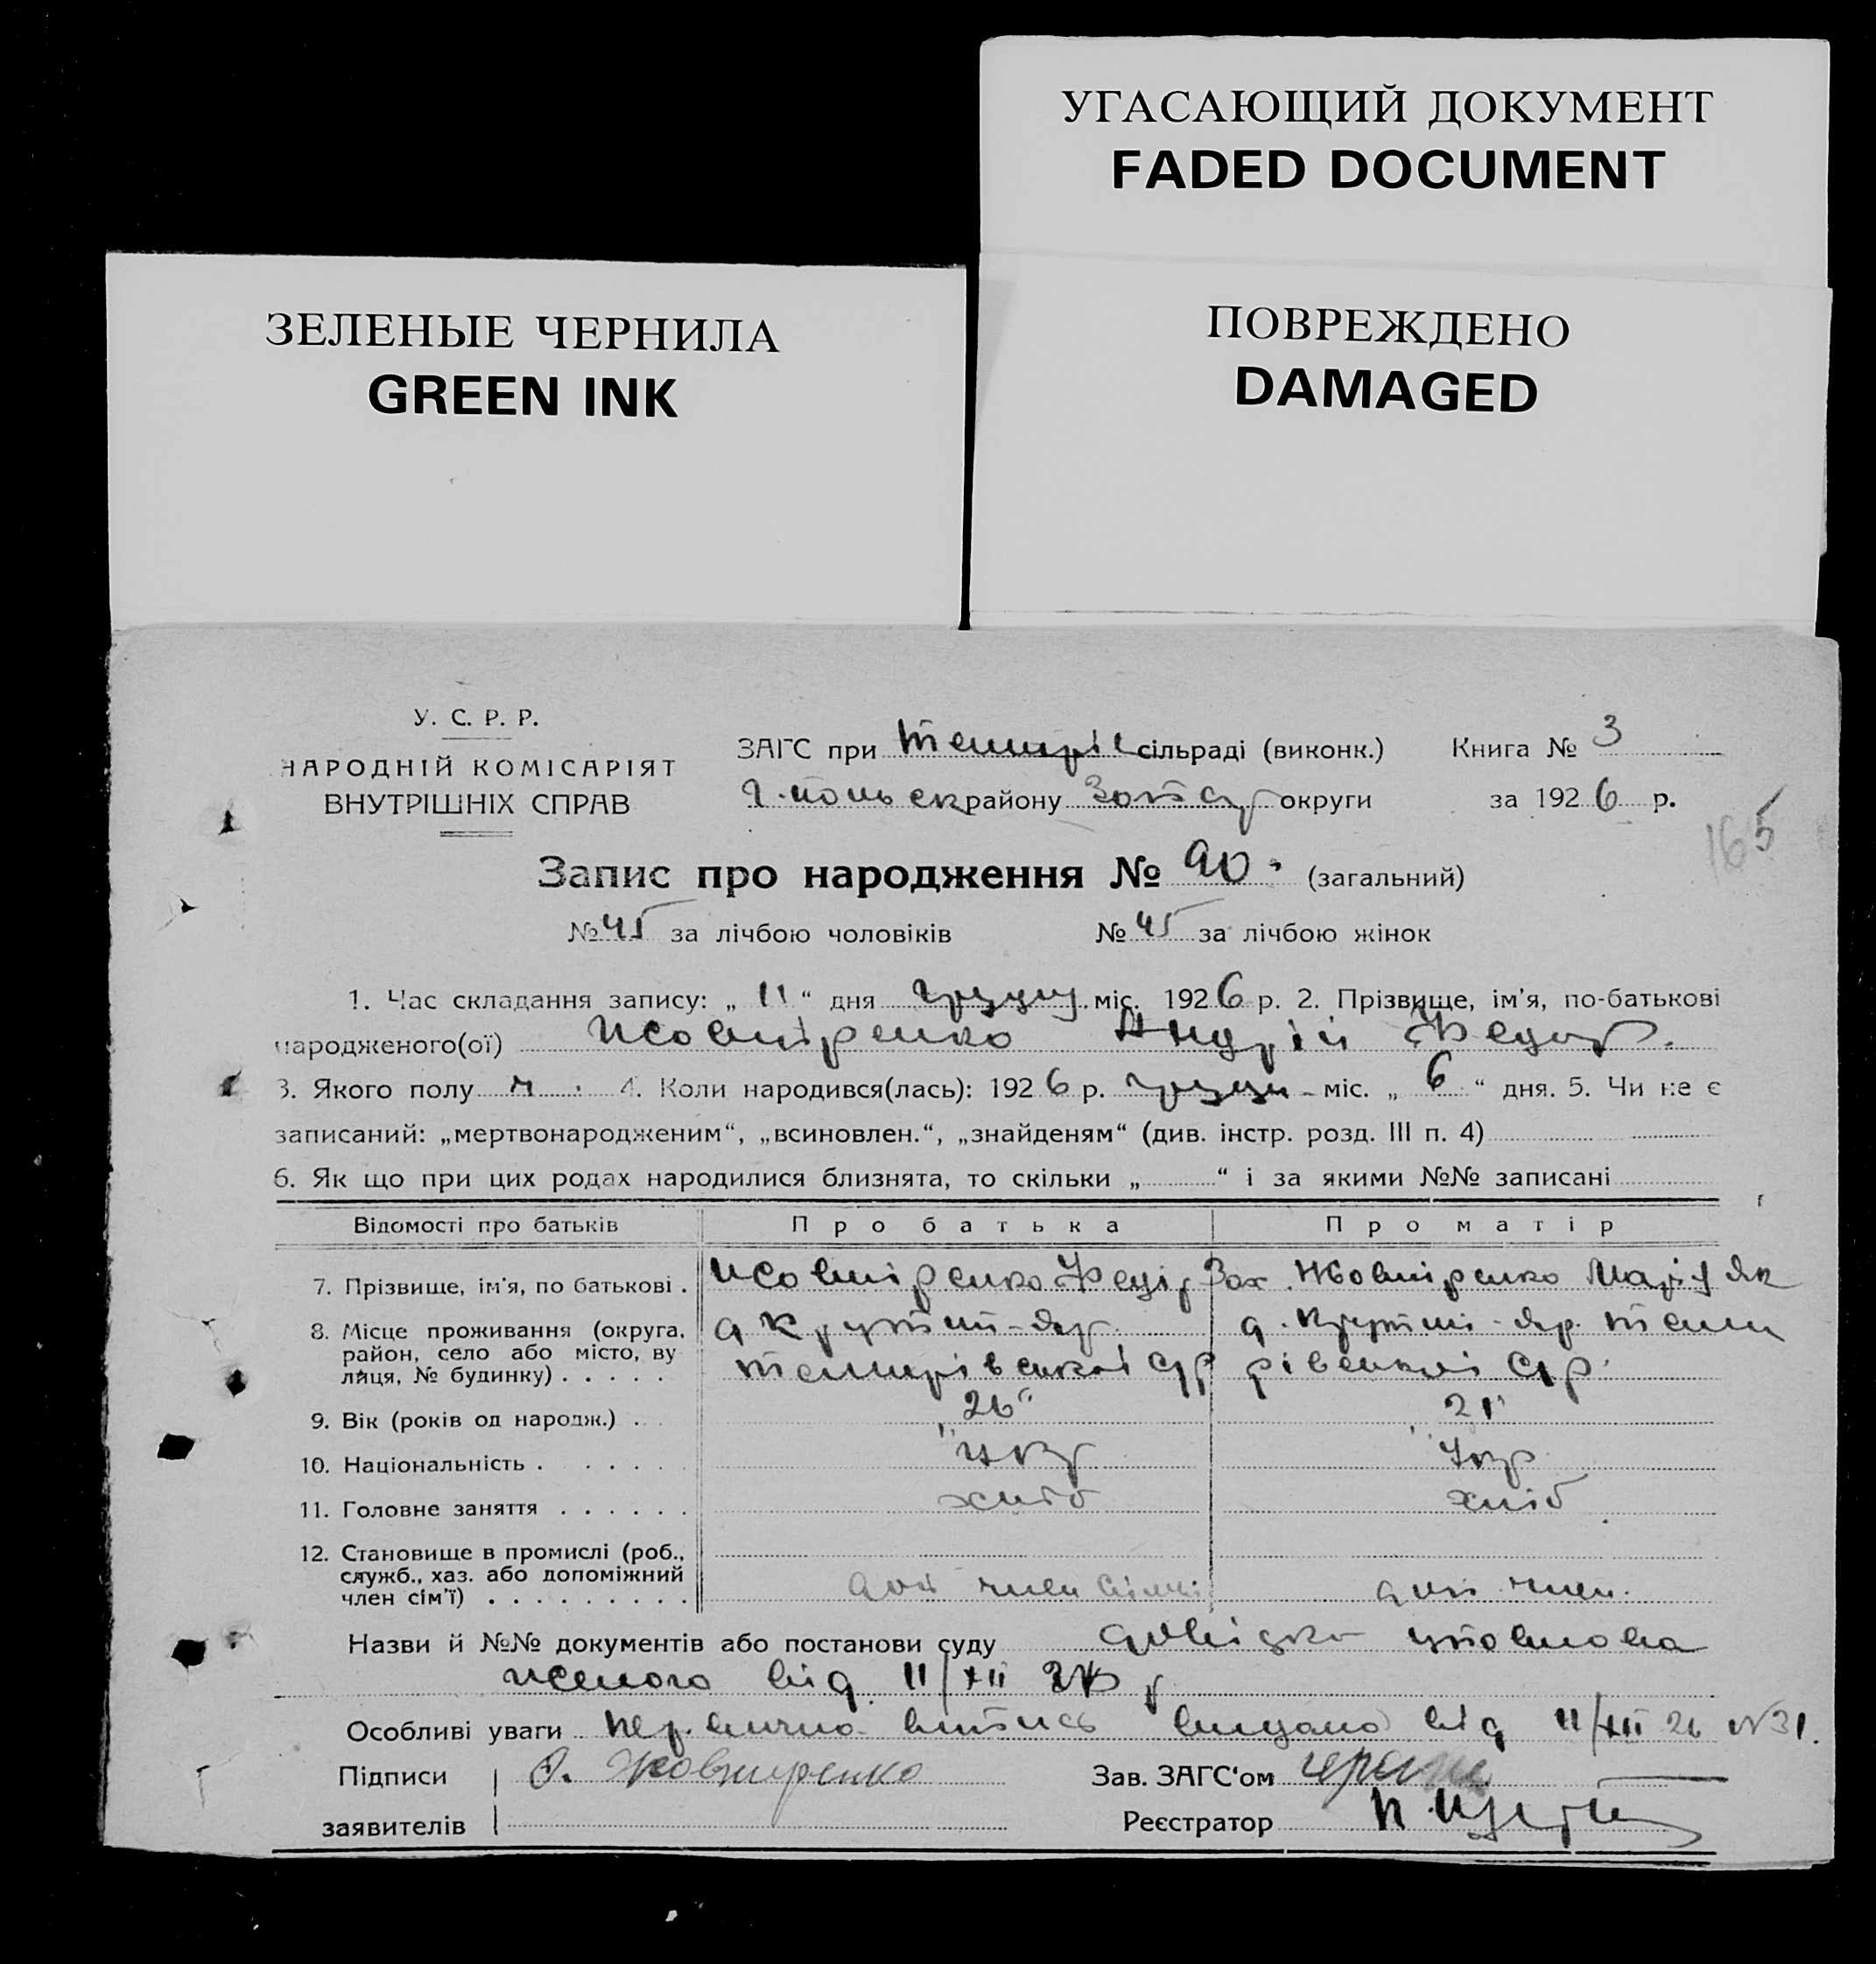 УГАСАЮЩИЙ ДОКУМЕНТ
FADED DOCUMENT
ЗЕЛЕНЫЕ ЧЕРНИЛА
GREEN INK
ПОВРЕЖДЕНО
DAMAGED
У. С. Р. Р.
НАРОДНІЙ КОМІСАРІЯТ
ВНУТРІШНІХ СПРАВ
ЗАГС при Темирів сільраді (виконк.) Книга № 3
Г.польск району округи за 1926 р.
165
Запис про народження № 90 (загальний)
№ 45 за лічбою чоловіків № 45 за лічбою жінок
1. Час складання запису: „ 11 “ дня грудня міс. 1926 р. 2. Прізвище, ім'я, по-батькові
народженого(ої) Жовніренко Андрій Федор.
3. Якого полу ч. 4. Коли народився(лась): 1926 р. грудн міс. „ 6 “ дня. 5. Чи не є
записаний: „мертвонародженим“, „всиновлен.“, „знайденям“ (див. інстр. розд. III п. 4)
6. Як що при цих родах народилися близнята, то скільки „ “ і за якими №№ записані
Відомості про батьків Про батька Про матір
7. Прізвище, ім'я, по батькові . Жовніренко Федір Зах. Жовніренко Марія Як
8. Місце проживання (округа, район, село або місто, вулиця, № будинку) . . . . .
Темирівської с/р
рівської с/р.
9. Вік (років од народж.) . „26“ „21“
10. Національність . . . . . . укр укр
11. Головне заняття . . . . . . хліб хліб
12. Становище в промислі (роб., служб., хаз. або допоміжний член сім'ї) . . . . . . . . .
доп член сімї доп. член.
Назви й №№ документів або постанови суду довідка уповнова
женого від 11/XII 26 р
Особливі уваги первична витпись видана від 11/XII 26 №31.
Підписи Жовниренко Зав. ЗАГС'ом
заявителів Реєстратор